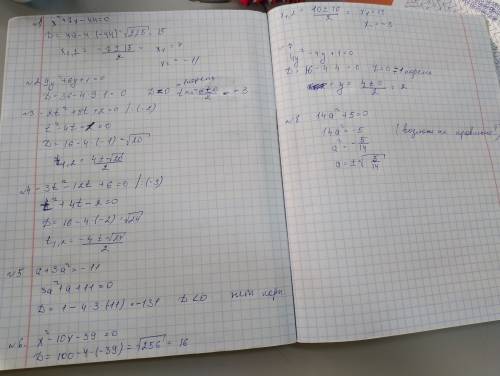 №1 x²+7x-44=0
D=49-4·(-44)=√225=15
x₁,₂ = (-7±15)/2 = x₁=4
x₂=-11
№2 9y²+6y+1=0
D=36-4·9·1=0 D=0 - 1 корень
№3 -2t²+8t+2=0 /:(-2)
t²-4t-1=0
D=16-4·(-1)=√20
t₁,₂=(4±√20)/2
№4 -3t²-12t+6=0 /:(-3)
t²+4t-2=0
D=16-4·(-2)=√24
t₁,₂=(-4±√24)/2
№5 a+3a²=-11
3a²+a+11=0
D=1-4·3·(11)=-131 D<0 нет корн
№6. x²-10x-39=0
D=100-4·(-39)=√256=16
x₁,₂=(10±16)/2= x₁=13
x₂=-3
7
4y²-4y+1=0
D=16-4·4=0 D=0 1 корень
№8 14a²+5=0
14a²=-5
a²=-5/14
a=±√(5/14)